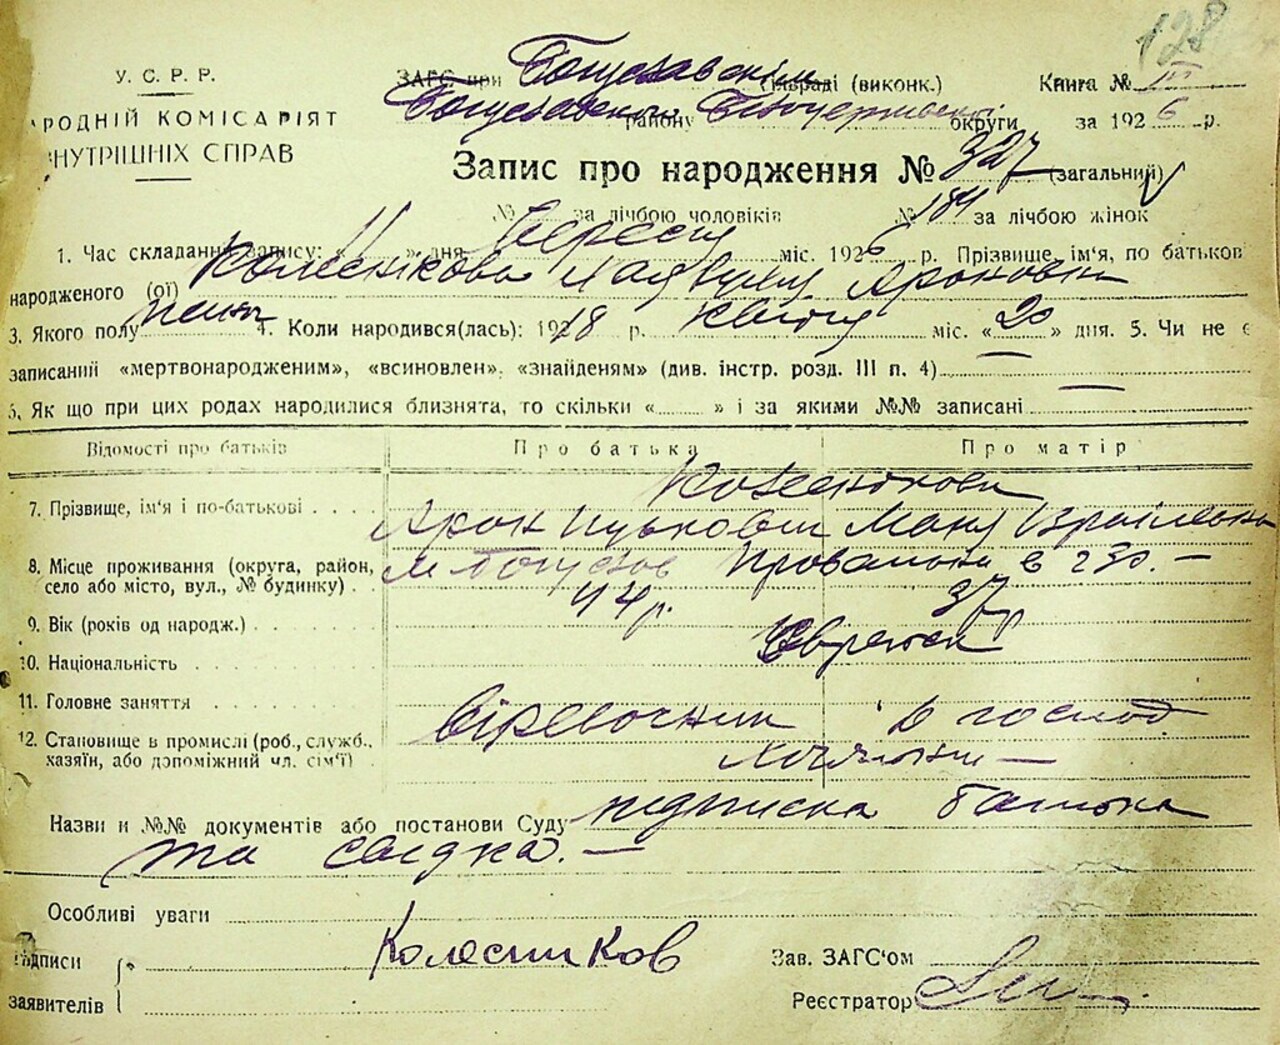 128
У. С. Р. Р.
РОДНІЙ КОМІСАРІЯТ
НУТРІШНІХ СПРАВ
ЗАГС при Богуславськім райраді (виконк.) Книга № III
Богуславського району Білоцерківської округи за 1926 р.
Запис про народження № 327 (загальний)
№ за лічбою чоловіків № 184 за лічбою жінок
1. Час складання запису: « » дня міс. 1926 р. Прізвище, ім'я, по батьков
народженого (ої) Колеснікова Ароновна
3. Якого полу жін 4. Коли народився(лась): 1918 р. Квітня міс. «20» дня. 5. Чи не є
записаний «мертвонародженим», «всиновлен», «знайденям» (див. інстр. розд. III п. 4)
6. Як що при цих родах народилися близнята, то скільки « » і за якими №№ записані
Відомості про батьків Про батька Про матір
7. Прізвище, ім'я і по-батькові Колесникови
Арон Ицькович Маня Ізраілевна
8. Місце проживання (округа, район, село або місто, вул., № будинку) м Богуслав
9. Вік (років од народж.) 44 р. 37 р
10. Національність Євреиськ
11. Головне заняття
12. Становище в промислі (роб., служб., хазяїн, або допоміжний чл. сім'ї) Вірьовочник в господ
Назви и №№ документів або постанови Суду підписка батька
та свідка. —
Особливі уваги
Підписи Колесников Зав. ЗАГС'ом
заявителів Реєстратор